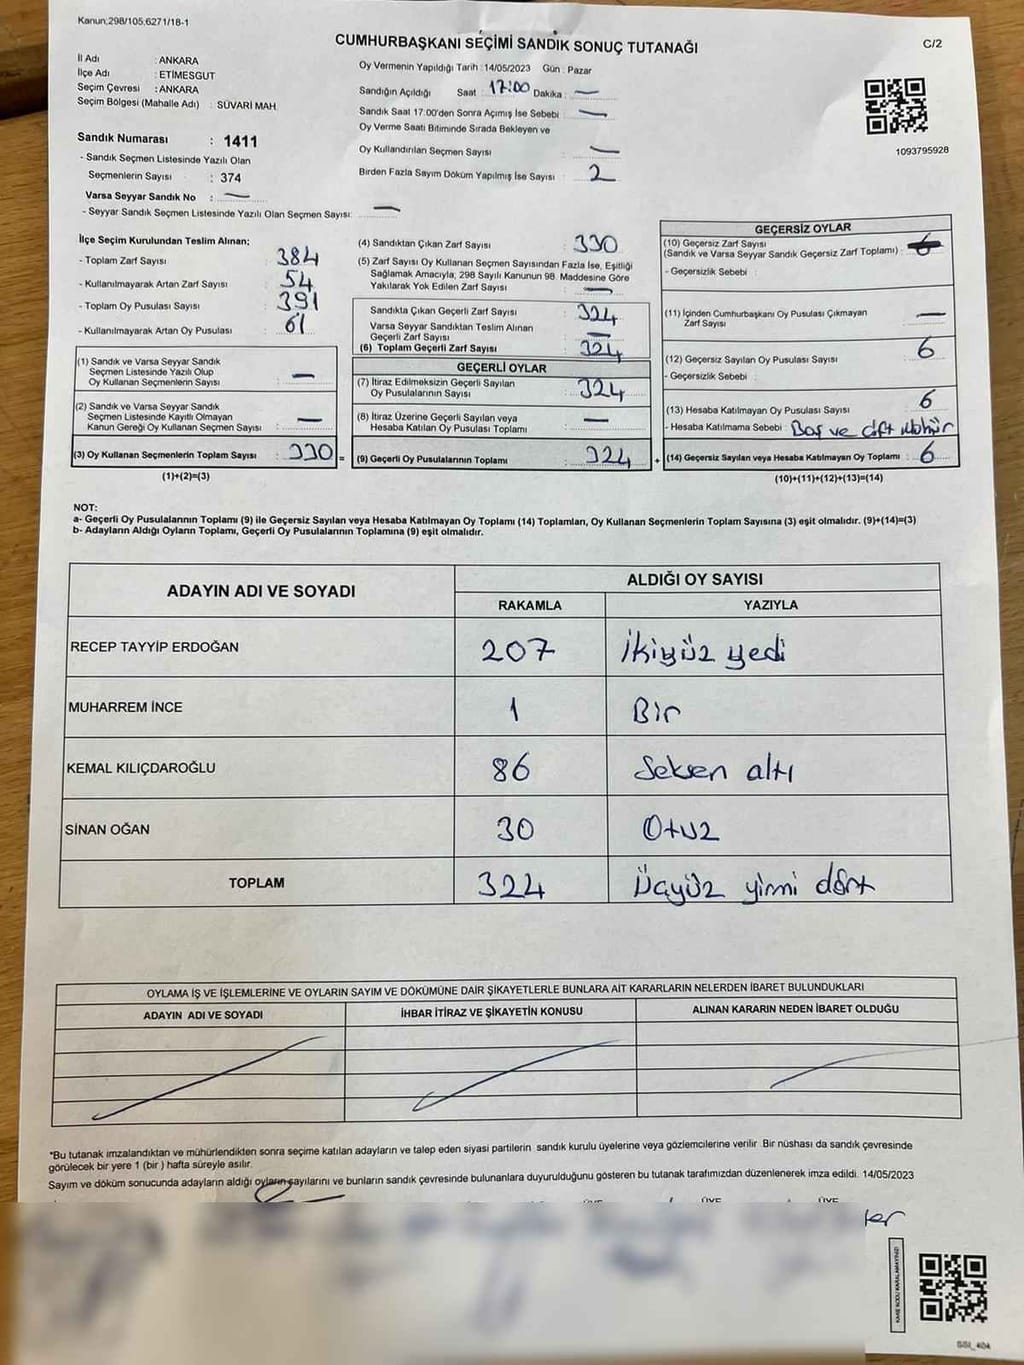 Kanun;298/105;6271/18-1
CUMHURBAŞKANI SEÇİMİ SANDIK SONUÇ TUTANAĞI
C/2
İl Adı : ANKARA
İlçe Adı : ETİMESGUT
Seçim Çevresi : ANKARA
Seçim Bölgesi (Mahalle Adı) : SÜVARİ MAH
Sandık Numarası : 1411
- Sandık Seçmen Listesinde Yazılı Olan
Seçmenlerin Sayısı : 374
Varsa Seyyar Sandık No : —
- Seyyar Sandık Seçmen Listesinde Yazılı Olan Seçmen Sayısı: —
Oy Vermenin Yapıldığı Tarih : 14/05/2023 Gün : Pazar
Sandığın Açıldığı Saat : 17:00 Dakika : —
Sandık Saat 17.00'den Sonra Açımış İse Sebebi : —
Oy Verme Saati Bitiminde Sırada Bekleyen ve
Oy Kullandırılan Seçmen Sayısı : —
Birden Fazla Sayım Döküm Yapılmış İse Sayısı : 2
1093795928
İlçe Seçim Kurulundan Teslim Alınan;
- Toplam Zarf Sayısı : 384
- Kullanılmayarak Artan Zarf Sayısı : 54
- Toplam Oy Pusulası Sayısı : 391
- Kullanılmayarak Artan Oy Pusulası : 61
(1) Sandık ve Varsa Seyyar Sandık
Seçmen Listesinde Yazılı Olup
Oy Kullanan Seçmenlerin Sayısı : —
(2) Sandık ve Varsa Seyyar Sandık
Seçmen Listesinde Kayıtlı Olmayan
Kanun Gereği Oy Kullanan Seçmen Sayısı : —
(3) Oy Kullanan Seçmenlerin Toplam Sayısı : 330 =
(1)+(2)=(3)
(4) Sandıktan Çıkan Zarf Sayısı : 330
(5) Zarf Sayısı Oy Kullanan Seçmen Sayısından Fazla İse, Eşitliği
Sağlamak Amacıyla; 298 Sayılı Kanunun 98. Maddesine Göre
Yakılarak Yok Edilen Zarf Sayısı : —
Sandıkta Çıkan Geçerli Zarf Sayısı : 324
Varsa Seyyar Sandıktan Teslim Alınan
Geçerli Zarf Sayısı : —
(6) Toplam Geçerli Zarf Sayısı : 324
GEÇERLİ OYLAR
(7) İtiraz Edilmeksizin Geçerli Sayılan
Oy Pusulalarının Sayısı : 324
(8) İtiraz Üzerine Geçerli Sayılan veya
Hesaba Katılan Oy Pusulası Toplamı : —
(9) Geçerli Oy Pusulalarının Toplamı : 324 +
GEÇERSİZ OYLAR
(10) Geçersiz Zarf Sayısı
(Sandık ve Varsa Seyyar Sandık Geçersiz Zarf Toplamı) :
- Geçersizlik Sebebi :
(11) İçinden Cumhurbaşkanı Oy Pusulası Çıkmayan
Zarf Sayısı : —
(12) Geçersiz Sayılan Oy Pusulası Sayısı : 6
- Geçersizlik Sebebi :
(13) Hesaba Katılmayan Oy Pusulası Sayısı : 6
- Hesaba Katılmama Sebebi : Boş ve çift mühür
(14) Geçersiz Sayılan veya Hesaba Katılmayan Oy Toplamı : 6
(10)+(11)+(12)+(13)=(14)
NOT:
a- Geçerli Oy Pusulalarının Toplamı (9) ile Geçersiz Sayılan veya Hesaba Katılmayan Oy Toplamı (14) Toplamları, Oy Kullanan Seçmenlerin Toplam Sayısına (3) eşit olmalıdır. (9)+(14)=(3)
b- Adayların Aldığı Oyların Toplamı, Geçerli Oy Pusulalarının Toplamına (9) eşit olmalıdır.
ADAYIN ADI VE SOYADI
ALDIĞI OY SAYISI
RAKAMLA YAZIYLA
RECEP TAYYİP ERDOĞAN 207 İkiyüz yedi
MUHARREM İNCE 1 Bir
KEMAL KILIÇDAROĞLU 86 Seksen altı
SİNAN OĞAN 30 Otuz
TOPLAM 324 Üçyüz yirmi dört
OYLAMA İŞ VE İŞLEMLERİNE VE OYLARIN SAYIM VE DÖKÜMÜNE DAİR ŞİKAYETLERLE BUNLARA AİT KARARLARIN NELERDEN İBARET BULUNDUKLARI
ADAYIN ADI VE SOYADI İHBAR İTİRAZ VE ŞİKAYETİN KONUSU ALINAN KARARIN NEDEN İBARET OLDUĞU
*Bu tutanak imzalandıktan ve mühürlendikten sonra seçime katılan adayların ve talep eden siyasi partilerin sandık kurulu üyelerine veya gözlemcilerine verilir. Bir nüshası da sandık çevresinde
görülecek bir yere 1 (bir ) hafta süreyle asılır.
Sayım ve döküm sonucunda adayların aldığı oyların sayılarını ve bunların sandık çevresinde bulunanlara duyurulduğunu gösteren bu tutanak tarafımızdan düzenlenerek imza edildi. 14/05/2023
ÜYE ÜYE ÜYE